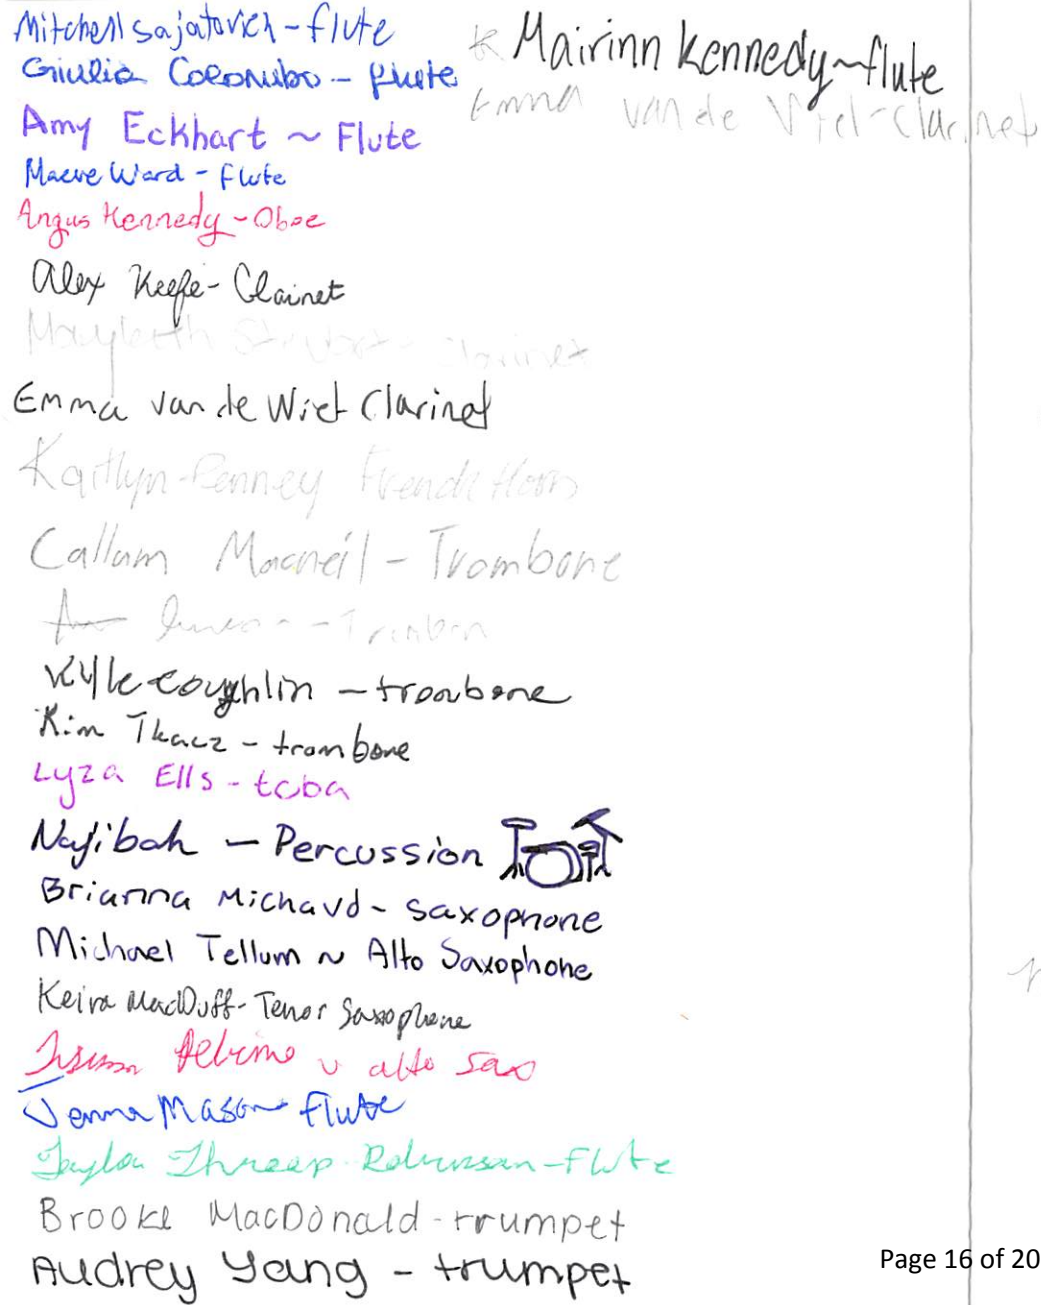 Mitchell Sajatovich - flute
Giulia Colonibo - flute
Amy Eckhart ~ Flute
Maeve Ward - flute
Angus Kennedy - Oboe
Alex Keefe - Clainet
Clarinet
Emma van de Wiel Clarinet
Kaitlyn Penney French Horn
Callum Macneil - Trombone
Kyle Coughlin - trombone
Kim Tkacz - trombone
Lyza Ells - tuba
Najibah - Percussion
Brianna Michaud - saxophone
Michael Tellum ~ Alto Saxophone
Keira MacDuff - Tenor Saxophone
alto sax
Jenna Mason flute
Taylor Threap-Robinson - flute
Brooke MacDonald - trumpet
Audrey Yang - trumpet
Mairinn Kennedy ~ flute
Emma van de Wiel - Clarinet
Page 16 of 20